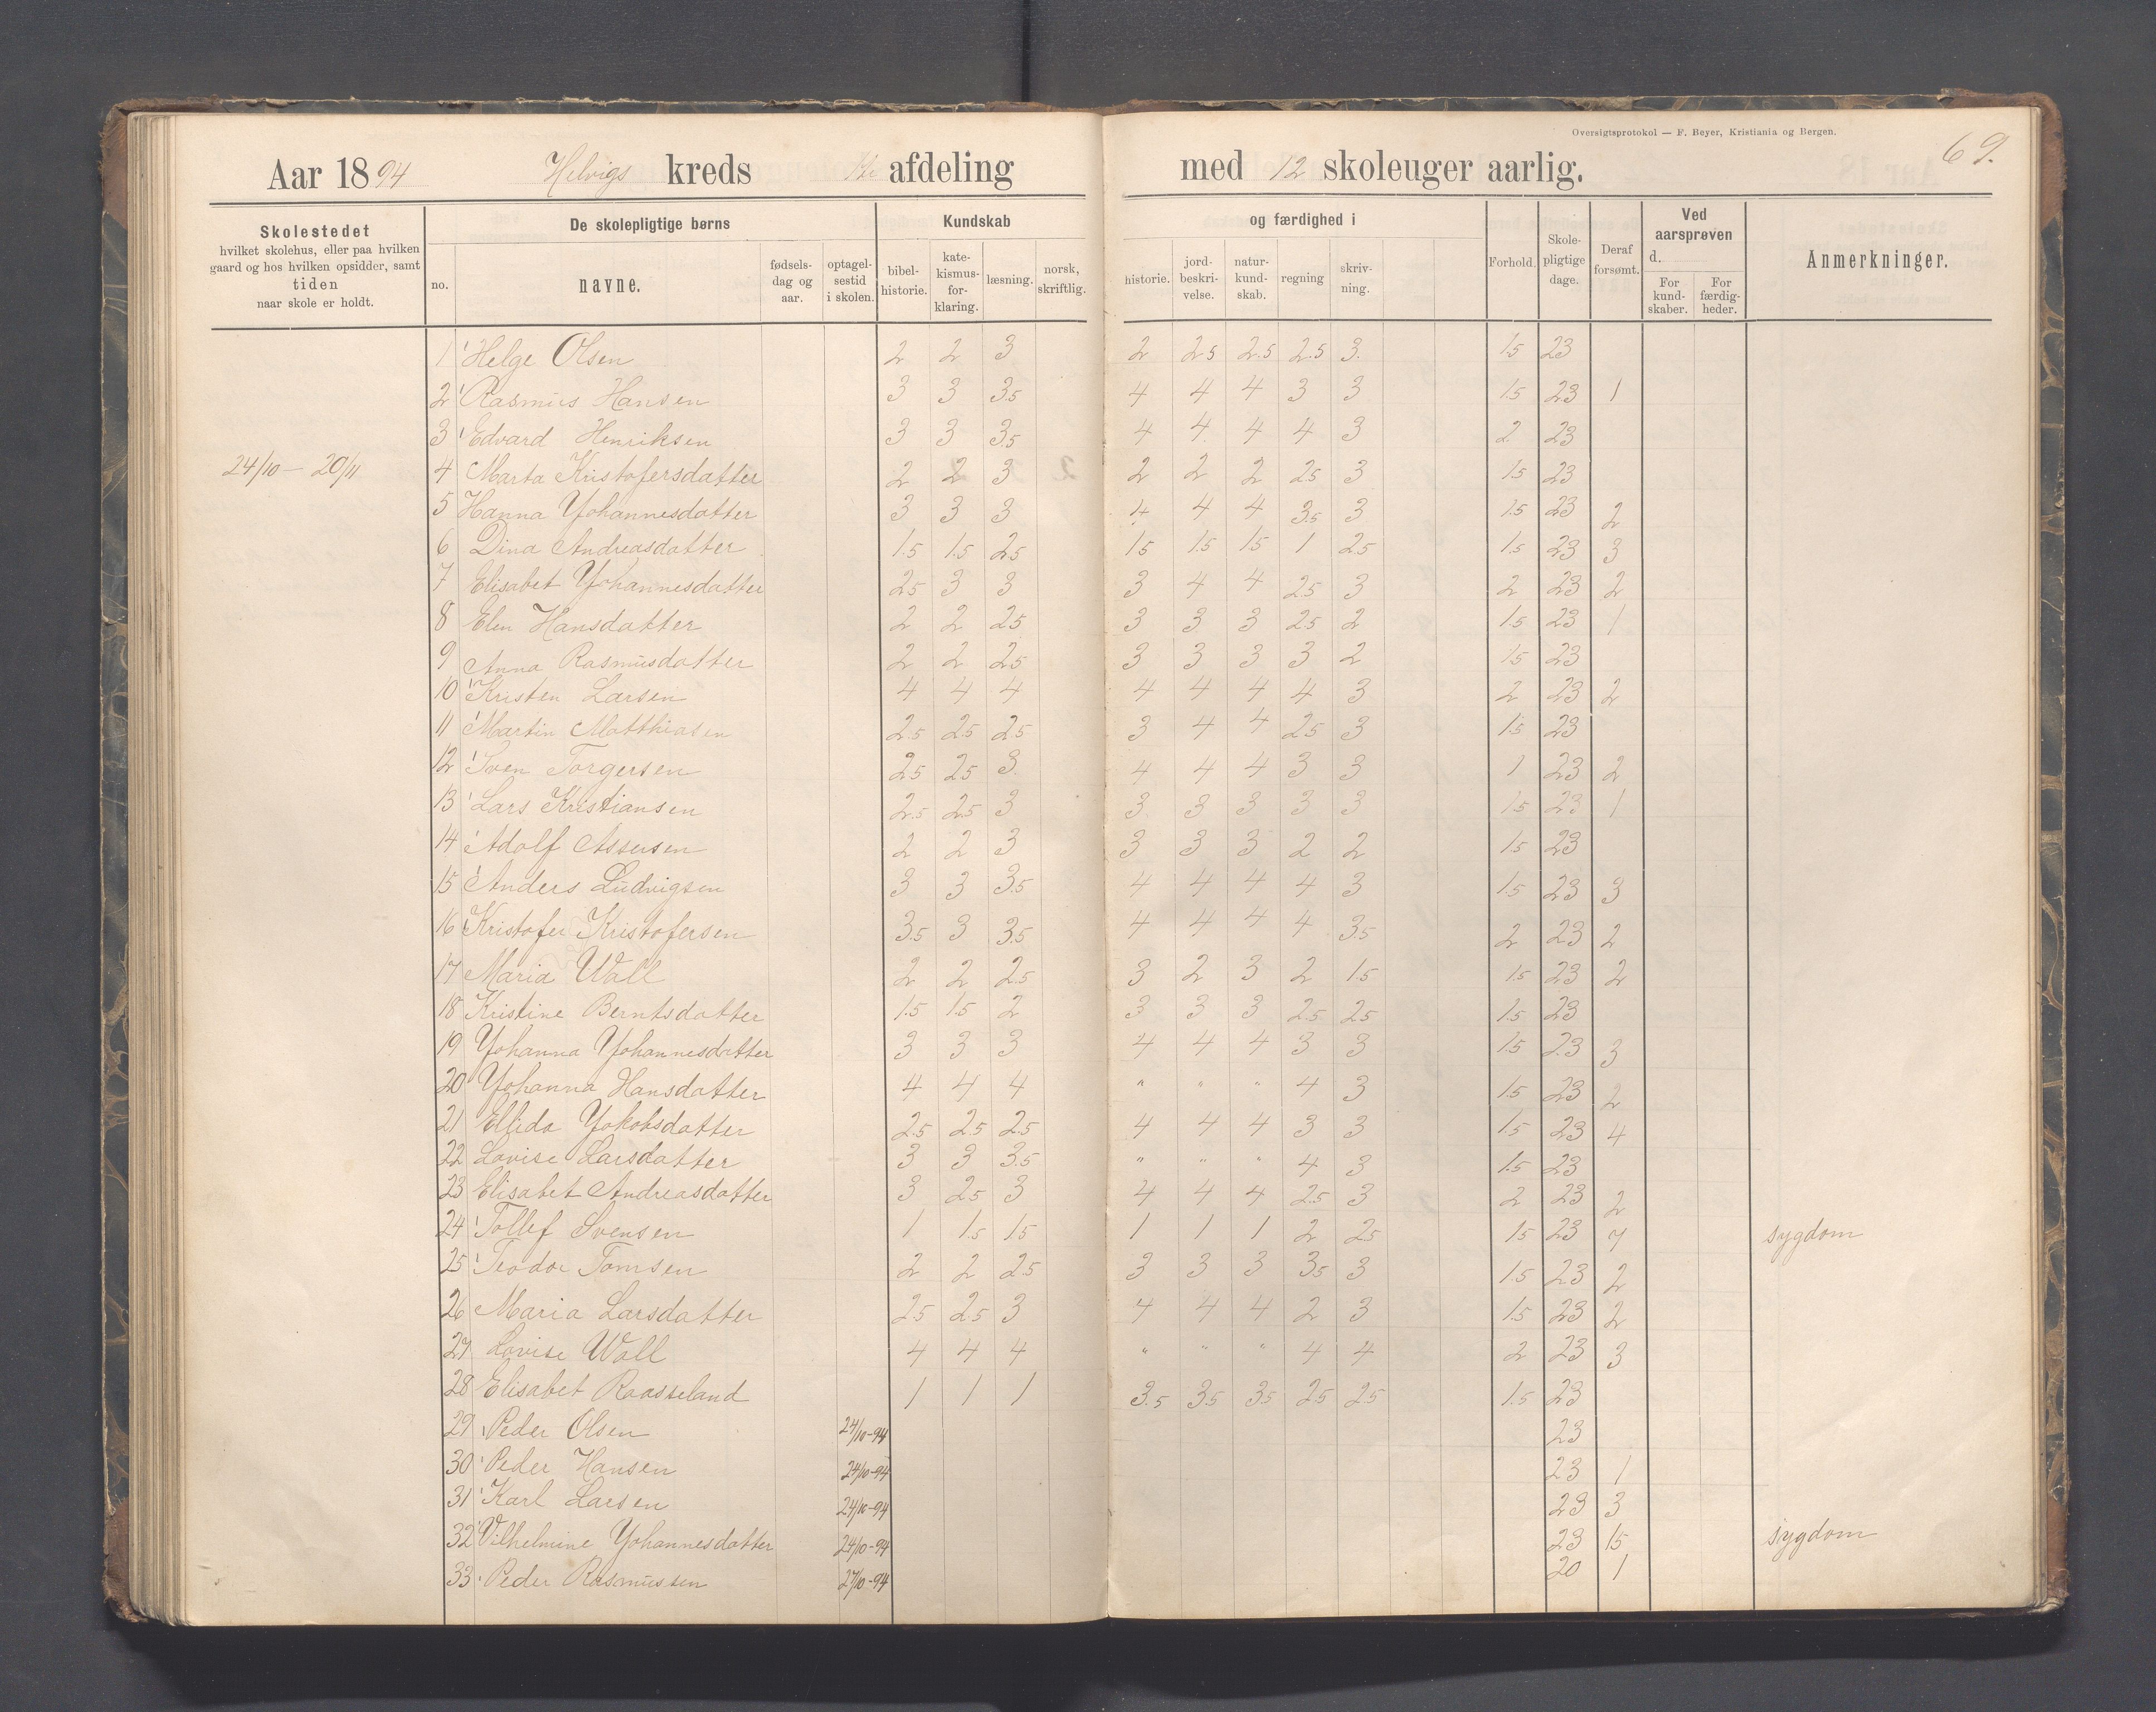 Oversigtsprotokol — F. Beyer, Kristiania og Bergen.
69.
Aar 1894 Helvigs kreds afdeling med 12 skoleuger aarlig.
Skolestedet
hvilket skolehus, eller paa hvilken
gaard og hos hvilken opsidder, samt
tiden
naar skole er holdt.
De skolepligtige børns
no.
navne.
fødsels-
dag og
aar.
optagel-
sestid
i skolen.
Kundskab
bibel-
historie.
kate-
kismus-
for-
klaring.
læsning.
norsk,
skriftlig.
og færdighed i
historie.
jord-
beskri-
velse.
natur-
kund-
skab.
regning
skriv-
ning.
Forhold.
Skole-
pligtige
dage.
Deraf
forsømt.
Ved
aarsprøven
d.
For
kund-
skaber.
For
færdig-
heder.
Anmerkninger.
24/10 — 20/11
1 Helge Olsen 2 2 3 2 2.5 2.5 2.5 3. 1.5 23
2 Rasmus Hansen 3 3 3.5 4 4 4 3 3 1.5 23 1
3 Edvard Henriksen 3 3 3.5 4 4 4 4 3 2 23
4 Marta Kristofersdatter 2 2 3 2 2 2 2.5 3 1.5 23
5 Hanna Yohannesdatter 3 3 3 4 4 4 3.5 3 1.5 23 2
6 Dina Andreasdatter 1.5 1.5 2.5 1.5 1.5 1.5 1 2.5 1.5 23 3
7 Elisabet Yohannesdatter 2.5 3 3 3 4 4 2.5 3 2 23 2
8 Elen Hansdatter 2 2 2.5 3 3 3 2.5 2 1.5 23 1
9 Anna Rasmusdatter 2 2 2.5 3 3 3 3 2 1.5 23
10 Kristen Larsen 4 4 4 4 4 4 4 3 2 23 2
11 Martin Matthiasen 2.5 2.5 2.5 3 4 4 2.5 3 1.5 23
12 Sven Torgersen 2.5 2.5 3 4 4 4 3 3 1 23 2
13 Lars Kristiansen 2.5 2.5 3 3 3 3 3 3 1.5 23 1
14 Adolf Assersen 2 2 3 3 3 3 2 2 1.5 23
15 Anders Ludvigsen 3 3 3.5 4 4 4 4 3 1.5 23 3
16 Kristofer Kristofersen 3.5 3 3.5 4 4 4 4 3.5 2 23 2
17 Maria Wall 2 2 2.5 3 2 3 2 1.5 1.5 23 2
18 Kristine Berntsdatter 1.5 1.5 2 3 3 3 2.5 2.5 1.5 23
19 Yohanna Yohannesdatter 3 3 3 4 4 4 3 3 1.5 23 3
20 Yohanna Hansdatter 4 4 4 " " " 4 3 1.5 23 2
21 Ellida Yakobsdatter 2.5 2.5 2.5 4 4 4 3 3 1.5 23 4
22 Lovise Larsdatter 3 3 3.5 " " " 4 3 1.5 23
23 Elisabet Andreasdatter 3 2.5 3 4 4 4 2.5 3 2 23 2
24 Tollef Svensen 1 1.5 1.5 1 1 1 2 2.5 1.5 23 7 sygdom
25 Teodor Tomsen 2 2 2.5 3 3 3 3.5 3 1.5 23 2
26 Maria Larsdatter 2.5 2.5 3 4 4 4 2 3 1.5 23 2
27 Lovise Wall 4 4 4 " " " 4 4 2 23 3
28 Elisabet Raasseland 1 1 1 3.5 3.5 3.5 2.5 2.5 1.5 23
29 Peder Olsen 24/10-94 23
30 Peder Hansen 24/10-94 23 1
31 Karl Larsen 24/10-94 23 3
32 Vilhelmine Yohannesdatter 24/10-94 23 15 sygdom
33 Peder Rasmussen 27/10-94 20 1